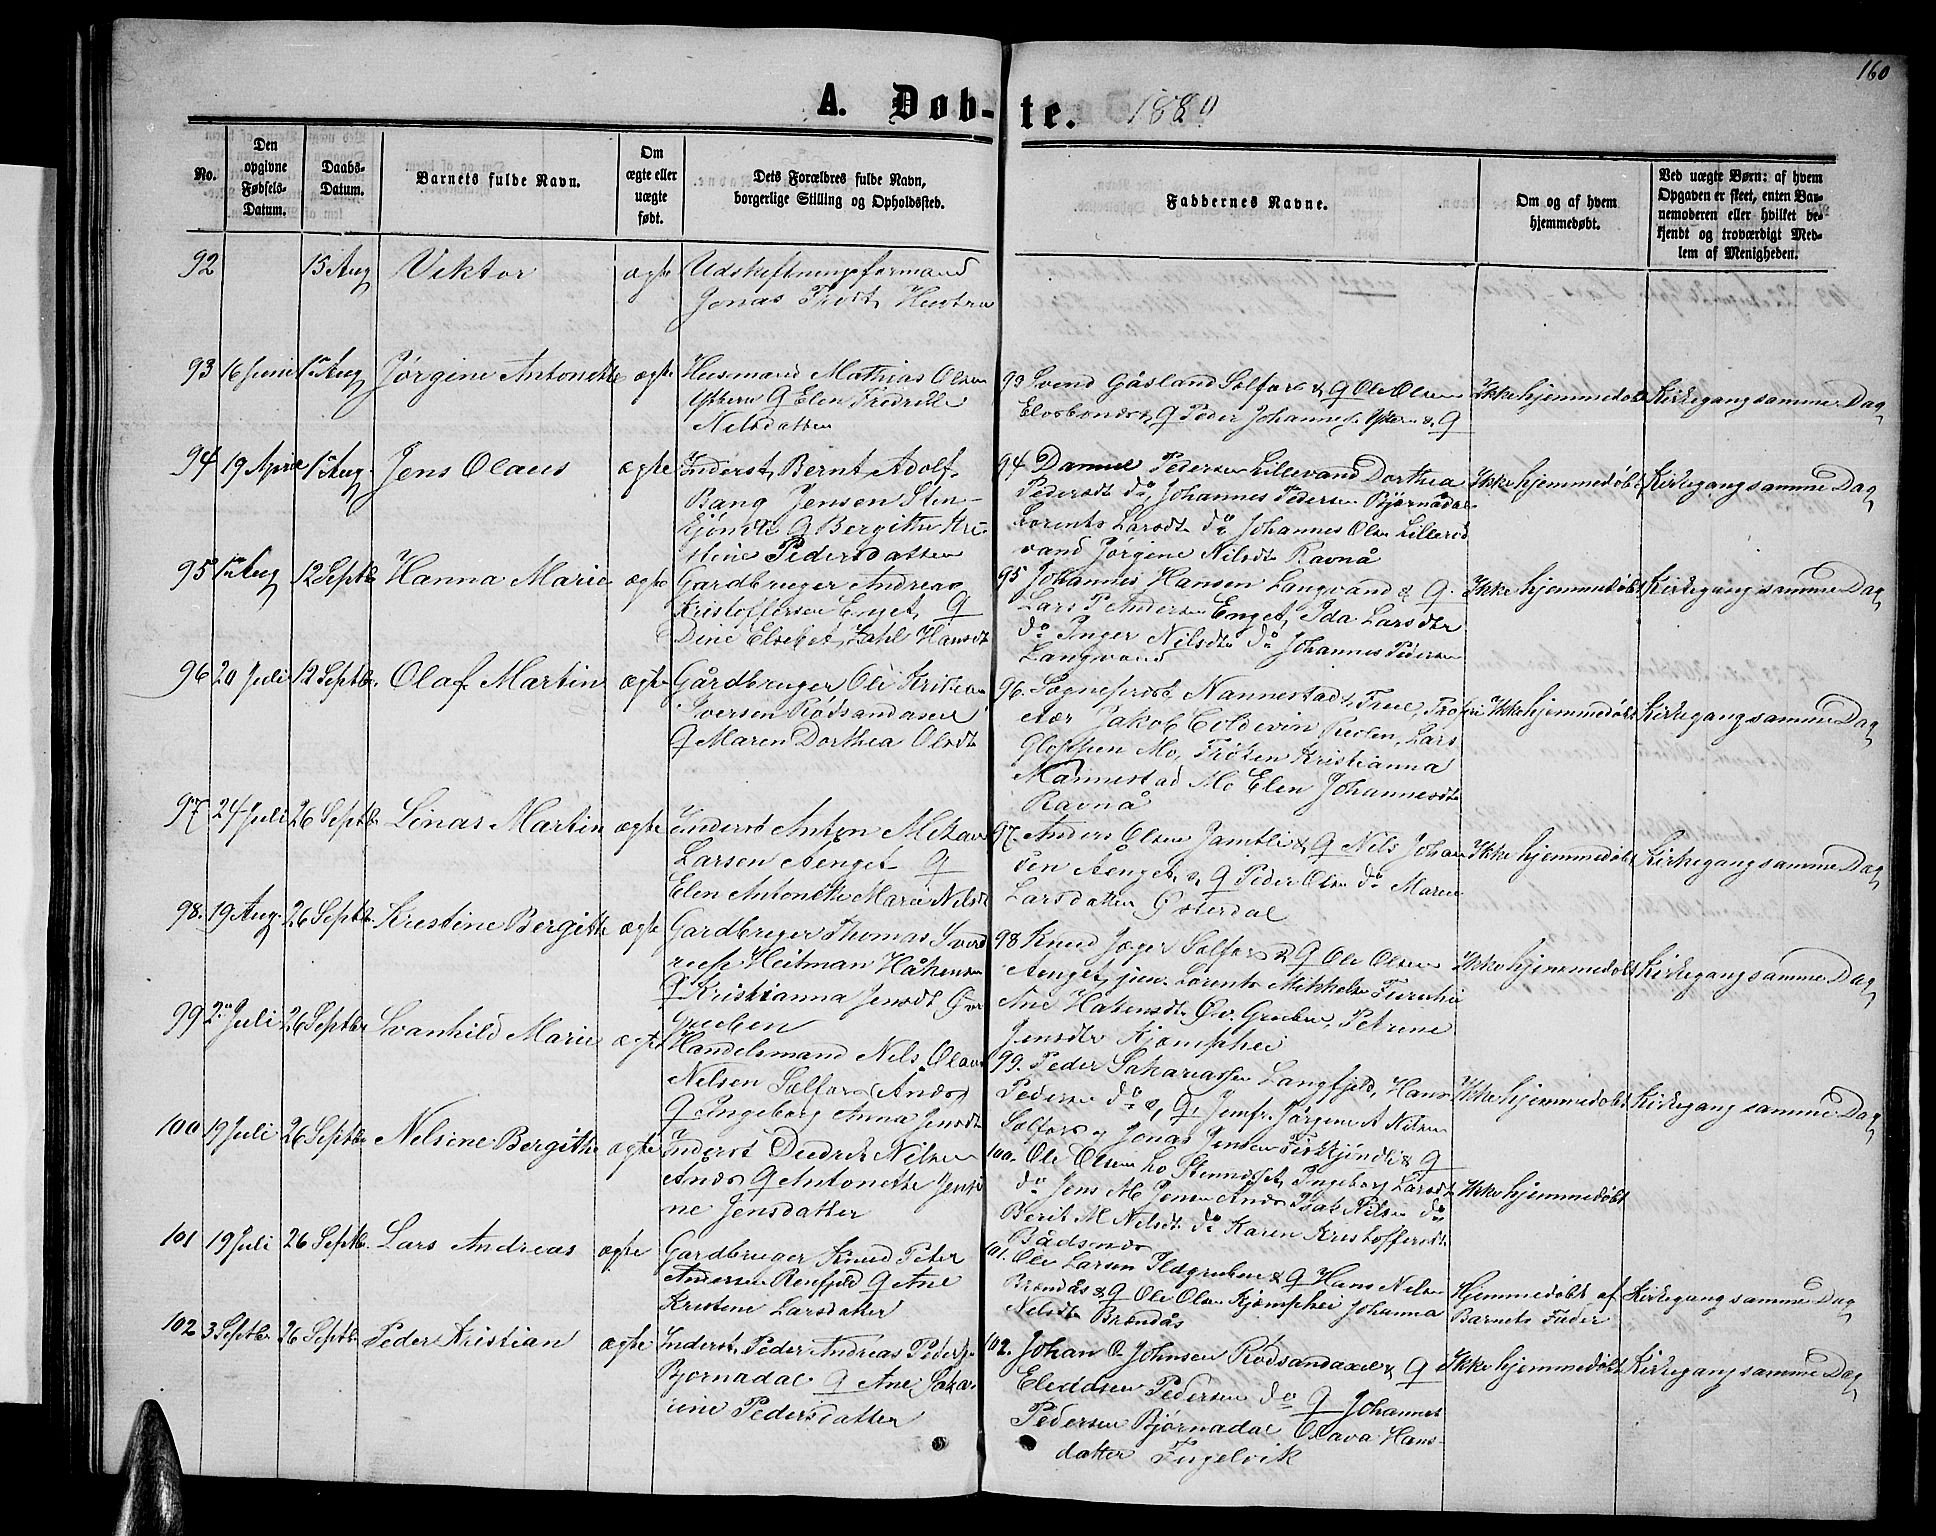 160
A. Døb-te. 1880
No.
Den opgivne Fødsels-Datum.
Daabs-Datum.
Barnets fulde Navn.
Om ægte eller uægte født.
Dets Forældres fulde Navn, borgerlige Stilling og Opholdssted.
Faddernes Navne.
Om og af hvem hjemmedøbt.
Ved uægte Børn: af hvem Opgaven er skeet, enten Barnemoderen eller hvilket bekjendt og troværdigt Medlem af Menigheden.
92 15 Aug Viktor ægte Udskiftningsformand
Jonas Hustru
93 16 Juni 15 Aug Jørgine Antonette ægte Husmand Mathias Olsen
Ytteren & Elen Fredrikke
Nilsdatter
93 Svend Gåsland Selfors & Ole Olsen
& Peder Johannes. Ytter. &
Ikke hjemmedøbt Kirkegang samme Dag
94 19 April 15 Aug. Jens Olaus ægte Inderst, Bernt Adolf
Bang Jensen Sten-
& Bergitte Kri-
stine Pedersdatter
94 Daniel Pedersen Lillevand Dorthea
Pedersdt. do, Johannes Pedersen Bjørnådal
Lorents Larsdt. do Johannes Olsen Lillerød
vand Jørgine Nilsdt. Ravnå
Ikke hjemmedøbt Kirkegang samme Dag
95 1 Aug 12 Septb. Hanna Marie ægte Gardbruger Andreas
Kristoffersen Enget, &
Dine Elsebet Zahl Hansdt
95 Johannes Hansen Langvand &
Lars P. Andersen Enget, Ida Larsdtr
do Inger Nilsdt. do Johannes Pedersen
Langvand
Ikke hjemmedøbt Kirkegang samme Dag
96 20 Juli 12 Septb. Olaf Martin ægte Gårdbruger Ole Kristian
Iversen Rødsandaasen
& Maren Dorthea Olsdt
96. Sogneprest, Nannestad, Frue, Propri
etær Jakob Coldevin Lars
Mo, Frøken Kristianna
Nannestad Mo Elen Johannesdt.
Ravnå
Ikke hjemmedøbt Kirkegang samme Dag
97 24 Juli 26 Septb. Linas Martin ægte Inderst Anton Mikael
Larsen Aenget &
Elen Antonette Marie Nilsdt
97. Anders Olsen Jamtli & Nils Johan
sen Aenget, & Peder Olsen do Maren
Larsdatter Østerdal
Ikke hjemmedøbt Kirkegang samme Dag
98. 19 Aug. 26 Septb. Kristine Bergitte ægte Gardbruger Thomas
Heitman Håkensen
& Kristianna Jensdt Øvre
gruben
98 Knud Jæger Selfors & Ole Olsen
Aenget, jun. Lorents Mikkelsen
Ane Hakensdt. Øv. Gruben, Petrine
Jensdtr Kjæmphei
Ikke hjemmedøbt Kirkegang samme Dag
99 2 Juli 26 Septbr Svanhild Marie ægte Handelsmand Nils Olaus
Nilsen Selfors
& Ingeborg Anna Jensdt
99. Peder Sakariassen Langfjeld, Hans
Pedersen do & Jomfr. Jørgine A Nilsen
Selfors, Jonas Jensen &
Ikke hjemmedøbt Kirkegang samme Dag
100 19 Juli 26 Septbr Nelsine Bergithe ægte Inderst Diedrik Nilsen
& Antonette
Jensdatter
100. Ole Olsen Ingeborg Larsdt.
do Jens M Jensen Isak Nilsen do
Berit M Nilsdt do Karen Kristoffersdt.
Ikke hjemmedøbt
101 19 Juli 26 Septb. Lars Andreas ægte Gardbruger Knud Peter
Amersen Renfjeld & Ane
Kristine Larsdatter
101. Ole Larsen Ildgruben & Hans Nilsen
Brændås & Ole Olsen Kjæmphei Johanna
Nilsdt Brændås
Hjemmedøbt af Kirkegang samme Dag
Barnets Fader
102 3 Septb. 26 Septb. Peder Kristian ægte Inderst, Peder Andreas Peders.
Bjørnadal & Ane
Pedersdatter
102. Johan O. Johnsen Rødsandaasen &
Pedersen do & Johannes
Pedersen Bjørnadal Olava Hans-
datter
Ikke hjemmedøbt Kirkegang samme Dag